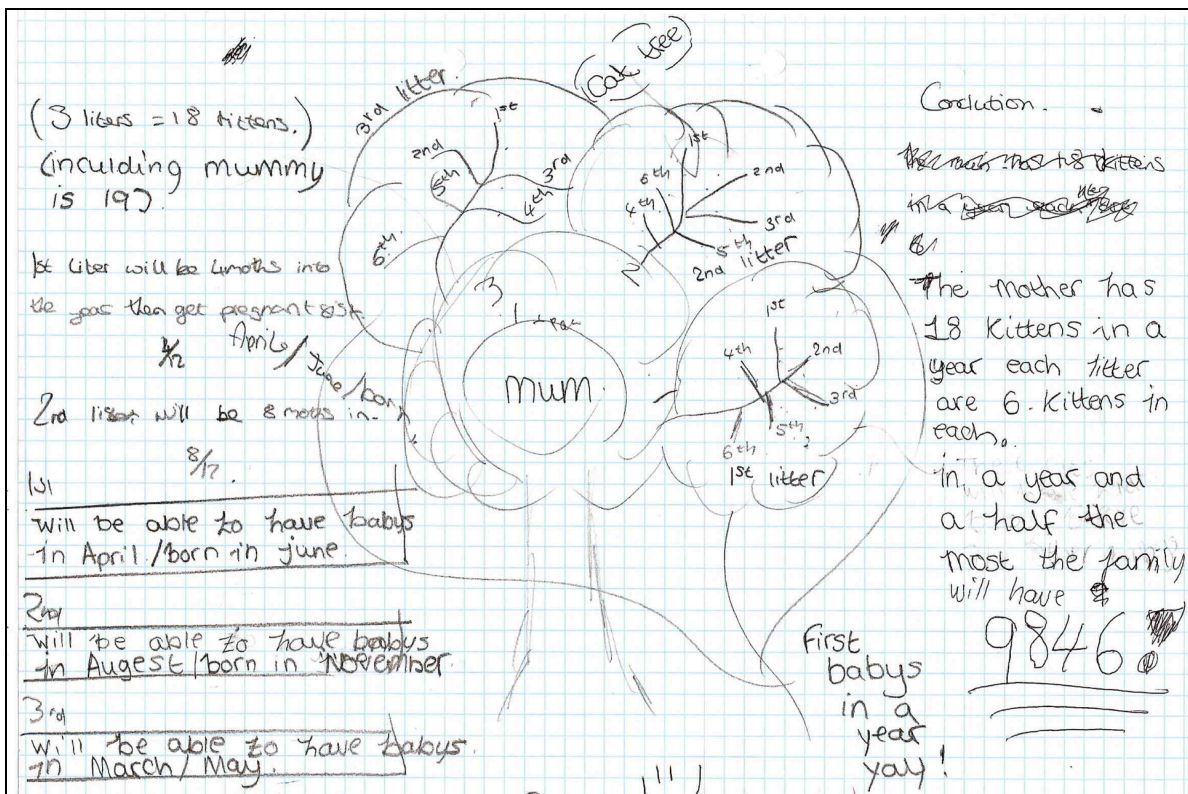 (3 liters = 18 kittens.)
(inculding mummy
is 19)
1st liter will be 4moths into
the year then get pregnant
4/12
Aprile/June/born
2nd liter will be 8 moths in
8/12
1st
will be able to have babys
in April/born in june.
2nd
will be able to have babys
in Augest/born in November.
3rd
will be able to have babys.
in March/May.
(Cat tree)
3rd litter.
1st
2nd
3rd
4th
5th
6th
1st
2nd
3rd
4th
5th
6th
2nd litter
2
3
mum
1st
2nd
3rd
4th
5th
6th
1st litter
First
babys
in a
year
yay!
Conclution.
The mother has
18 Kittens in a
year each litter
are 6. Kittens in
each.
in a year and
a half the
most the family
will have
9846.